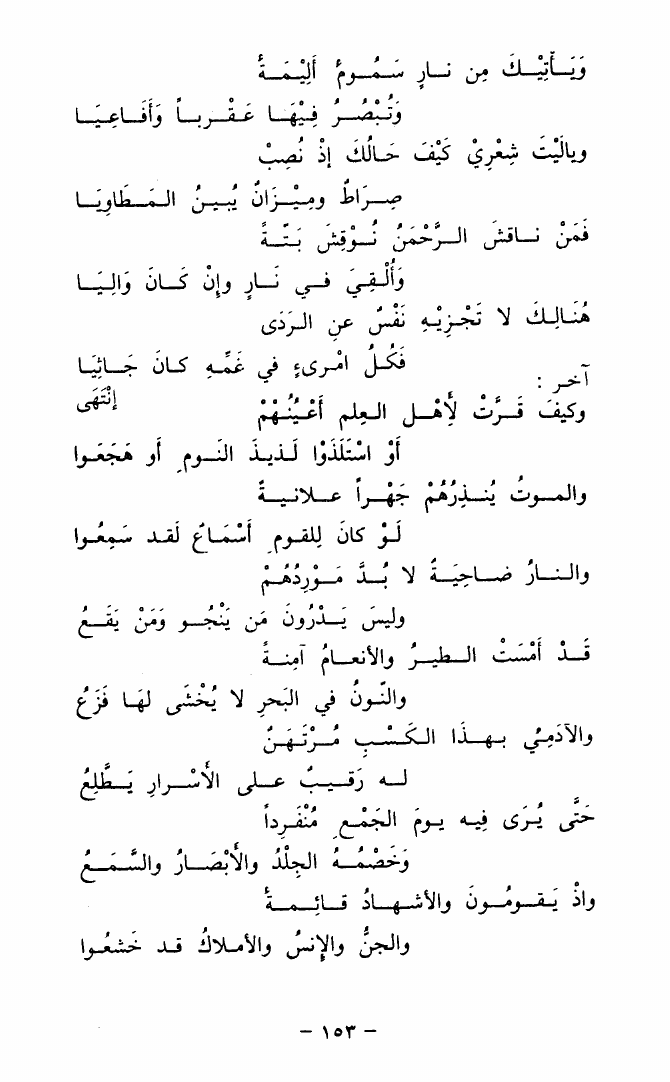 وَيَأْتِيْكَ مِن نارٍ سَمُومٌ أَلِيْمَةٌ
وَتُبْصُرُ فِيْهَا عَقْرباً وَأَفَاعِيَا
وياليْتَ شِعْرِيْ كَيْفَ حَالُكَ إِذْ نُصِبْ
صِراطٌ ومِيْزَانٌ يُبينُ المَطَاوِيَا
فَمَنْ ناقشَ الرَّحْمَنُ نُوْقِشَ بَتَّةً
وَأُلْقِيَ في نَارٍ وإنْ كَانَ وَالِيَا
هُنَالِكَ لا تَجْزِيْهِ نَفْسٌ عنِ الرَدَى
فَكُلُ امْرىءٍ في غَمِّهِ كانَ جَاثِيَا
إنْتَهَى
آخر :
وكيفَ قَرَّتْ لأَهْلِ العِلمِ أَعْيُنُهُمْ
أَوْ اسْتَلَذَوْا لَذيذَ النَومِ أو هَجَعَوا
والموتُ يُنذِرُهُمْ جَهْراً علانيةً
لَوْ كانَ لِلقومِ أَسْمَاعٌ لَقد سَمِعُوا
والنارُ ضاحِيَةٌ لا بُدَّ مَوْرِدُهُمْ
وليسَ يَدْرُونَ مَن يَنْجُو وَمَنْ يَقَعُ
قَدْ أَمْسَتْ الطيرُ والأنعامُ آمِنةً
والنّونُ في البَحرِ لا يُخْشَى لهَا فَزَعُ
والآدَمِيُ بِهذَا الكَسْبِ مُرْتَهَنٌ
له رَقيبٌ على الأَسْرارِ يَطَّلِعُ
حَتَّى يُرَى فيه يومَ الجَمْعِ مُنْفَرِداً
وَخَصْمُهُ الجِلْدُ والأَبْصَارُ والسَّمَعُ
واذْ يَقومُونَ والأشهادُ قائِمةٌ
والجنُّ والإنسُ والأملاكُ قد خَشعُوا
- ١٥٣ -